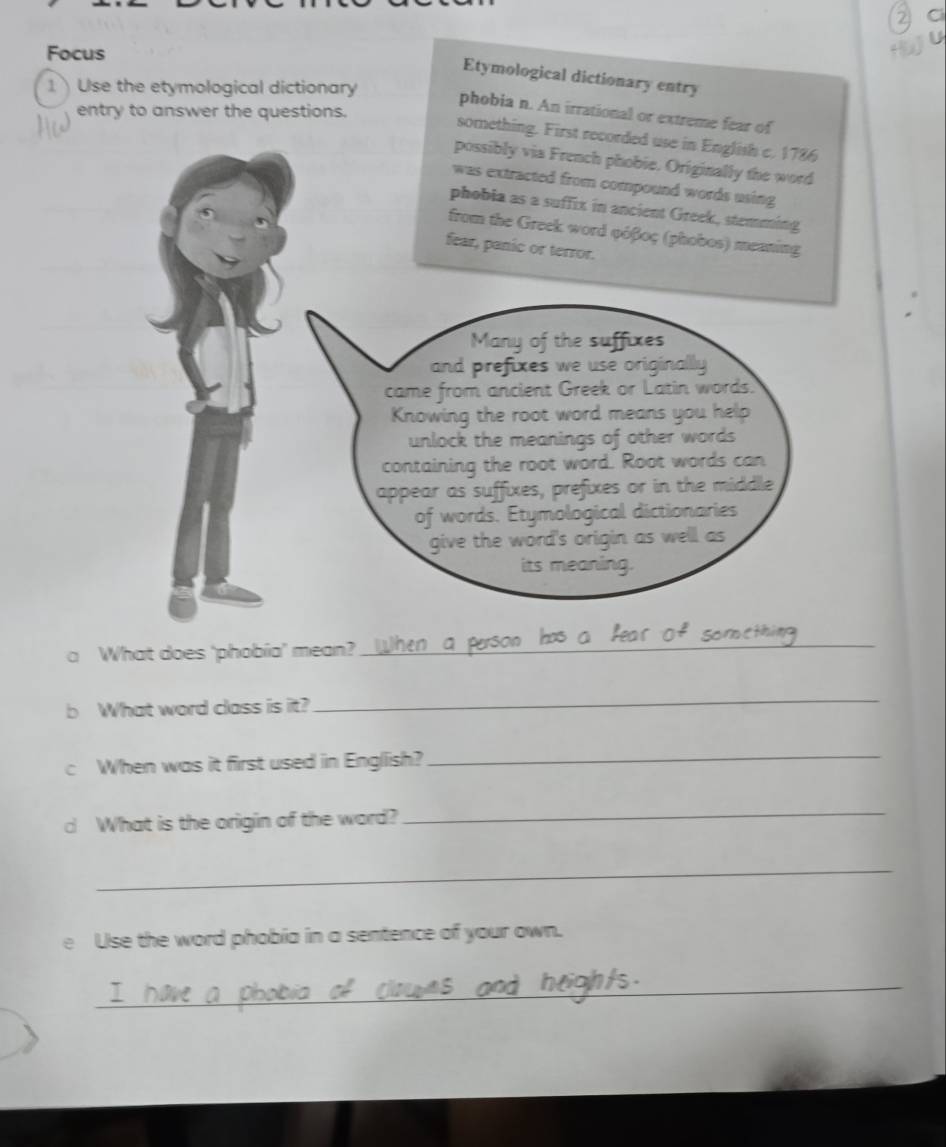 2
HW
Focus
1 Use the etymological dictionary
entry to answer the questions.
HW
Etymological dictionary entry
phobia n. An irrational or extreme fear of
something. First recorded use in English c. 1786
possibly via French phobie. Originally the word
was extracted from compound words using
phobia as a suffix in ancient Greek, stemming
from the Greek word φόβος (phobos) meaning
fear, panic or terror.
Many of the suffixes
and prefixes we use originally
came from ancient Greek or Latin words.
Knowing the root word means you help
unlock the meanings of other words
containing the root word. Root words can
appear as suffixes, prefixes or in the middle
of words. Etymological dictionaries
give the word's origin as well as
its meaning.
a What does 'phobia' mean? When a person has a fear of something
b What word class is it?
c When was it first used in English?
d What is the origin of the word?
e Use the word phobia in a sentence of your own.
I have a phobia of clowns and heights.